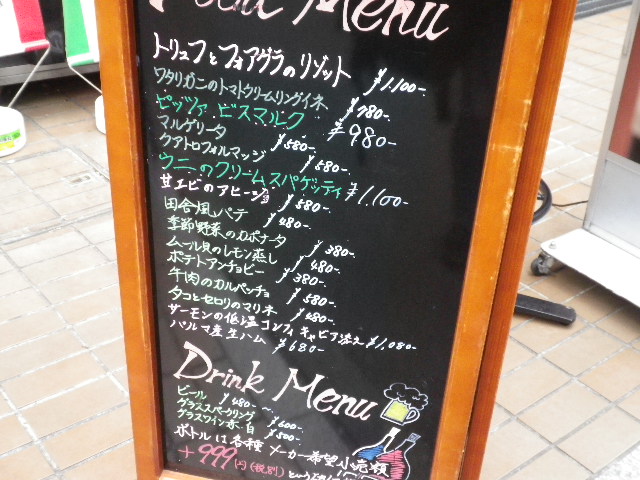 Food Menu
トリュフとフォアグラのリゾット ¥1,100-
ワタリガニのトマトクリームリングイネ ¥780-
ピッツァ ビスマルク ¥980-
マルゲリータ ¥580-
クアトロフォルマッジ ¥580-
ウニのクリームスパゲッティ ¥1,100-
甘エビのアヒージョ ¥580-
田舎風パテ ¥480-
季節野菜のカポナータ ¥380-
ムール貝のレモン蒸し ¥480-
ポテトアンチョビー ¥380-
牛肉のカルパッチョ ¥580-
タコとセロリのマリネ ¥480-
サーモンの低温コンフィキャビア添え ¥1,080-
パルマ産生ハム ¥680-
Drink Menu
ビール ¥480-
グラススパークリング ¥600-
グラスワイン赤・白 ¥500-
ボトルは各種メーカー希望小売額
+999円(税別)